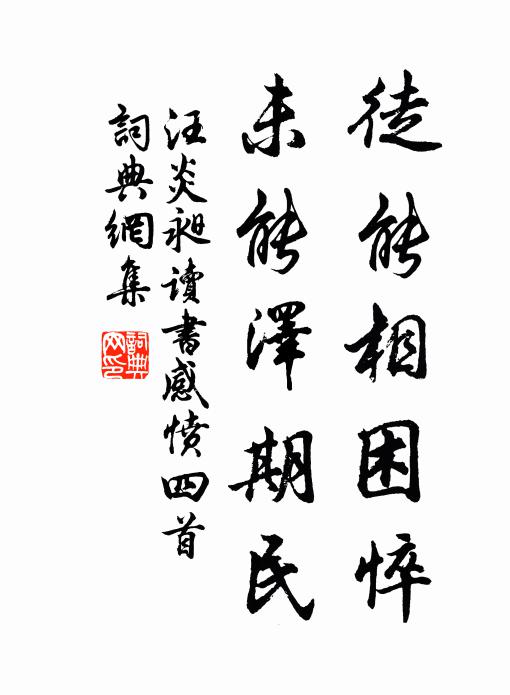 徒能相困悴
未能澤期民
汪炎昶讀書感憤四首
詞典網集
詞典网印